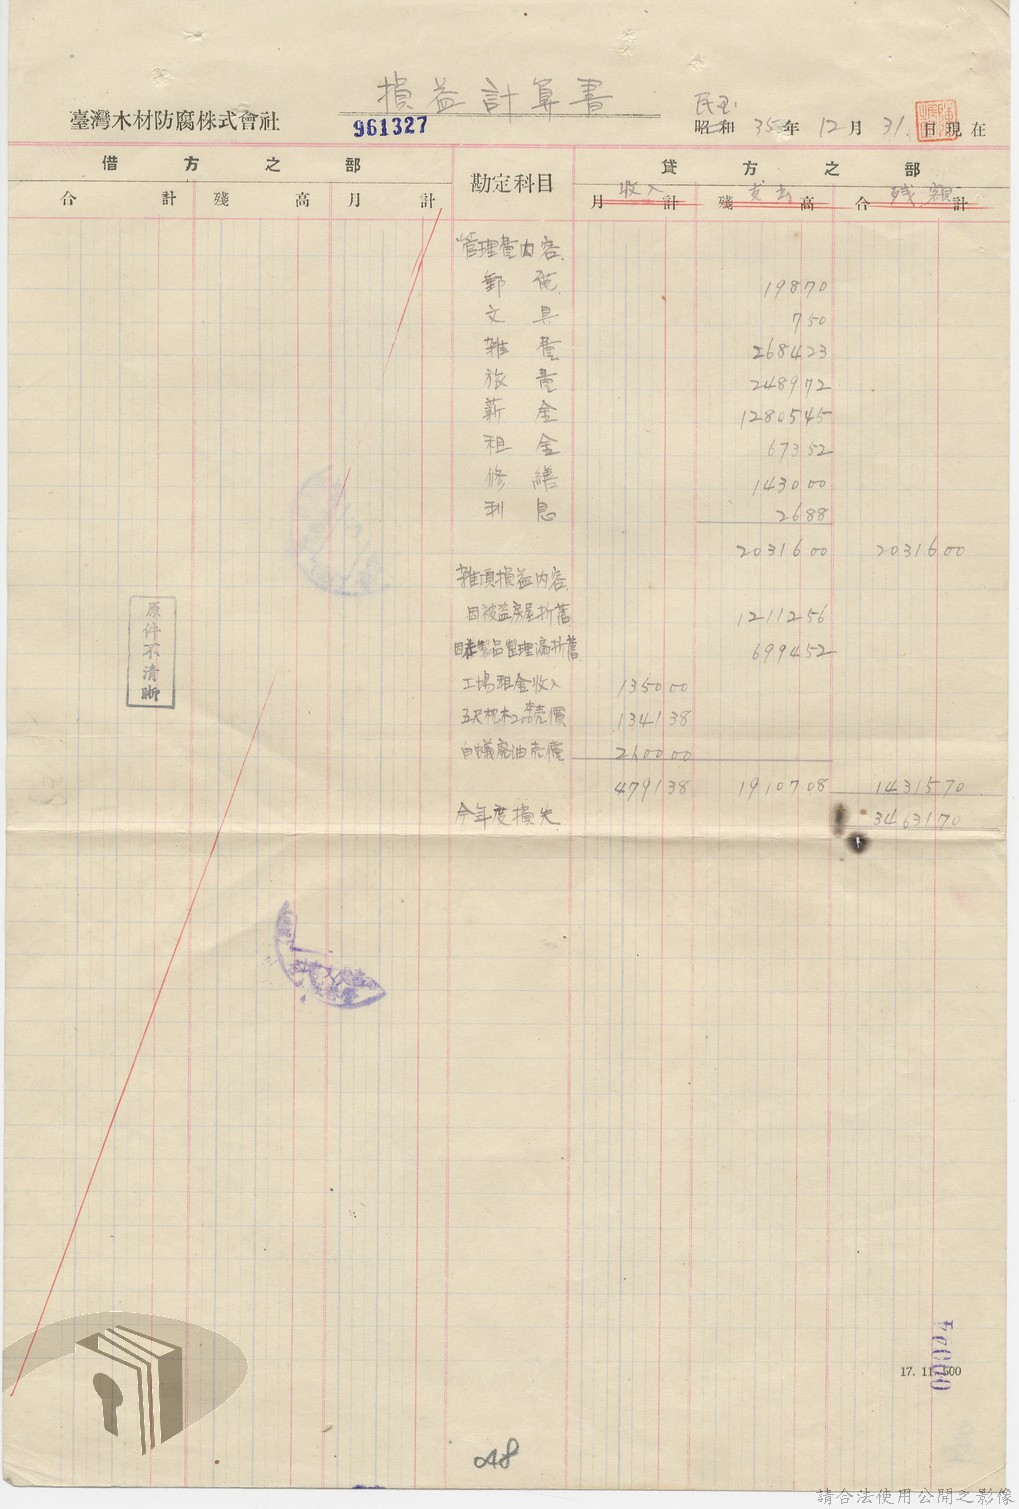 損益計算書
臺灣木材防腐株式會社
961327
民國
昭和 35年 12月 31日現在
借方之部
勘定科目
貸方之部
合計 殘高 月計
月計 殘高 合計
收入 支出 残額
管理費內容
郵花 19870
文具 750
雜費 268423
旅費 248972
薪金 1280545
租金 67352
修繕 143000
利息 2688
2031600 2031600
雜項損益內容
因被盜房屋折舊 1211256
製品整理 折舊 699452
工場租金收入 135000
五尺枕木200本売價 134138
白蟻 油売價 260000
479138 1910708 1431570
今年度損失 3463170
原件不清晰
17. 11. 500
00024
48
請合法使用公開之影像